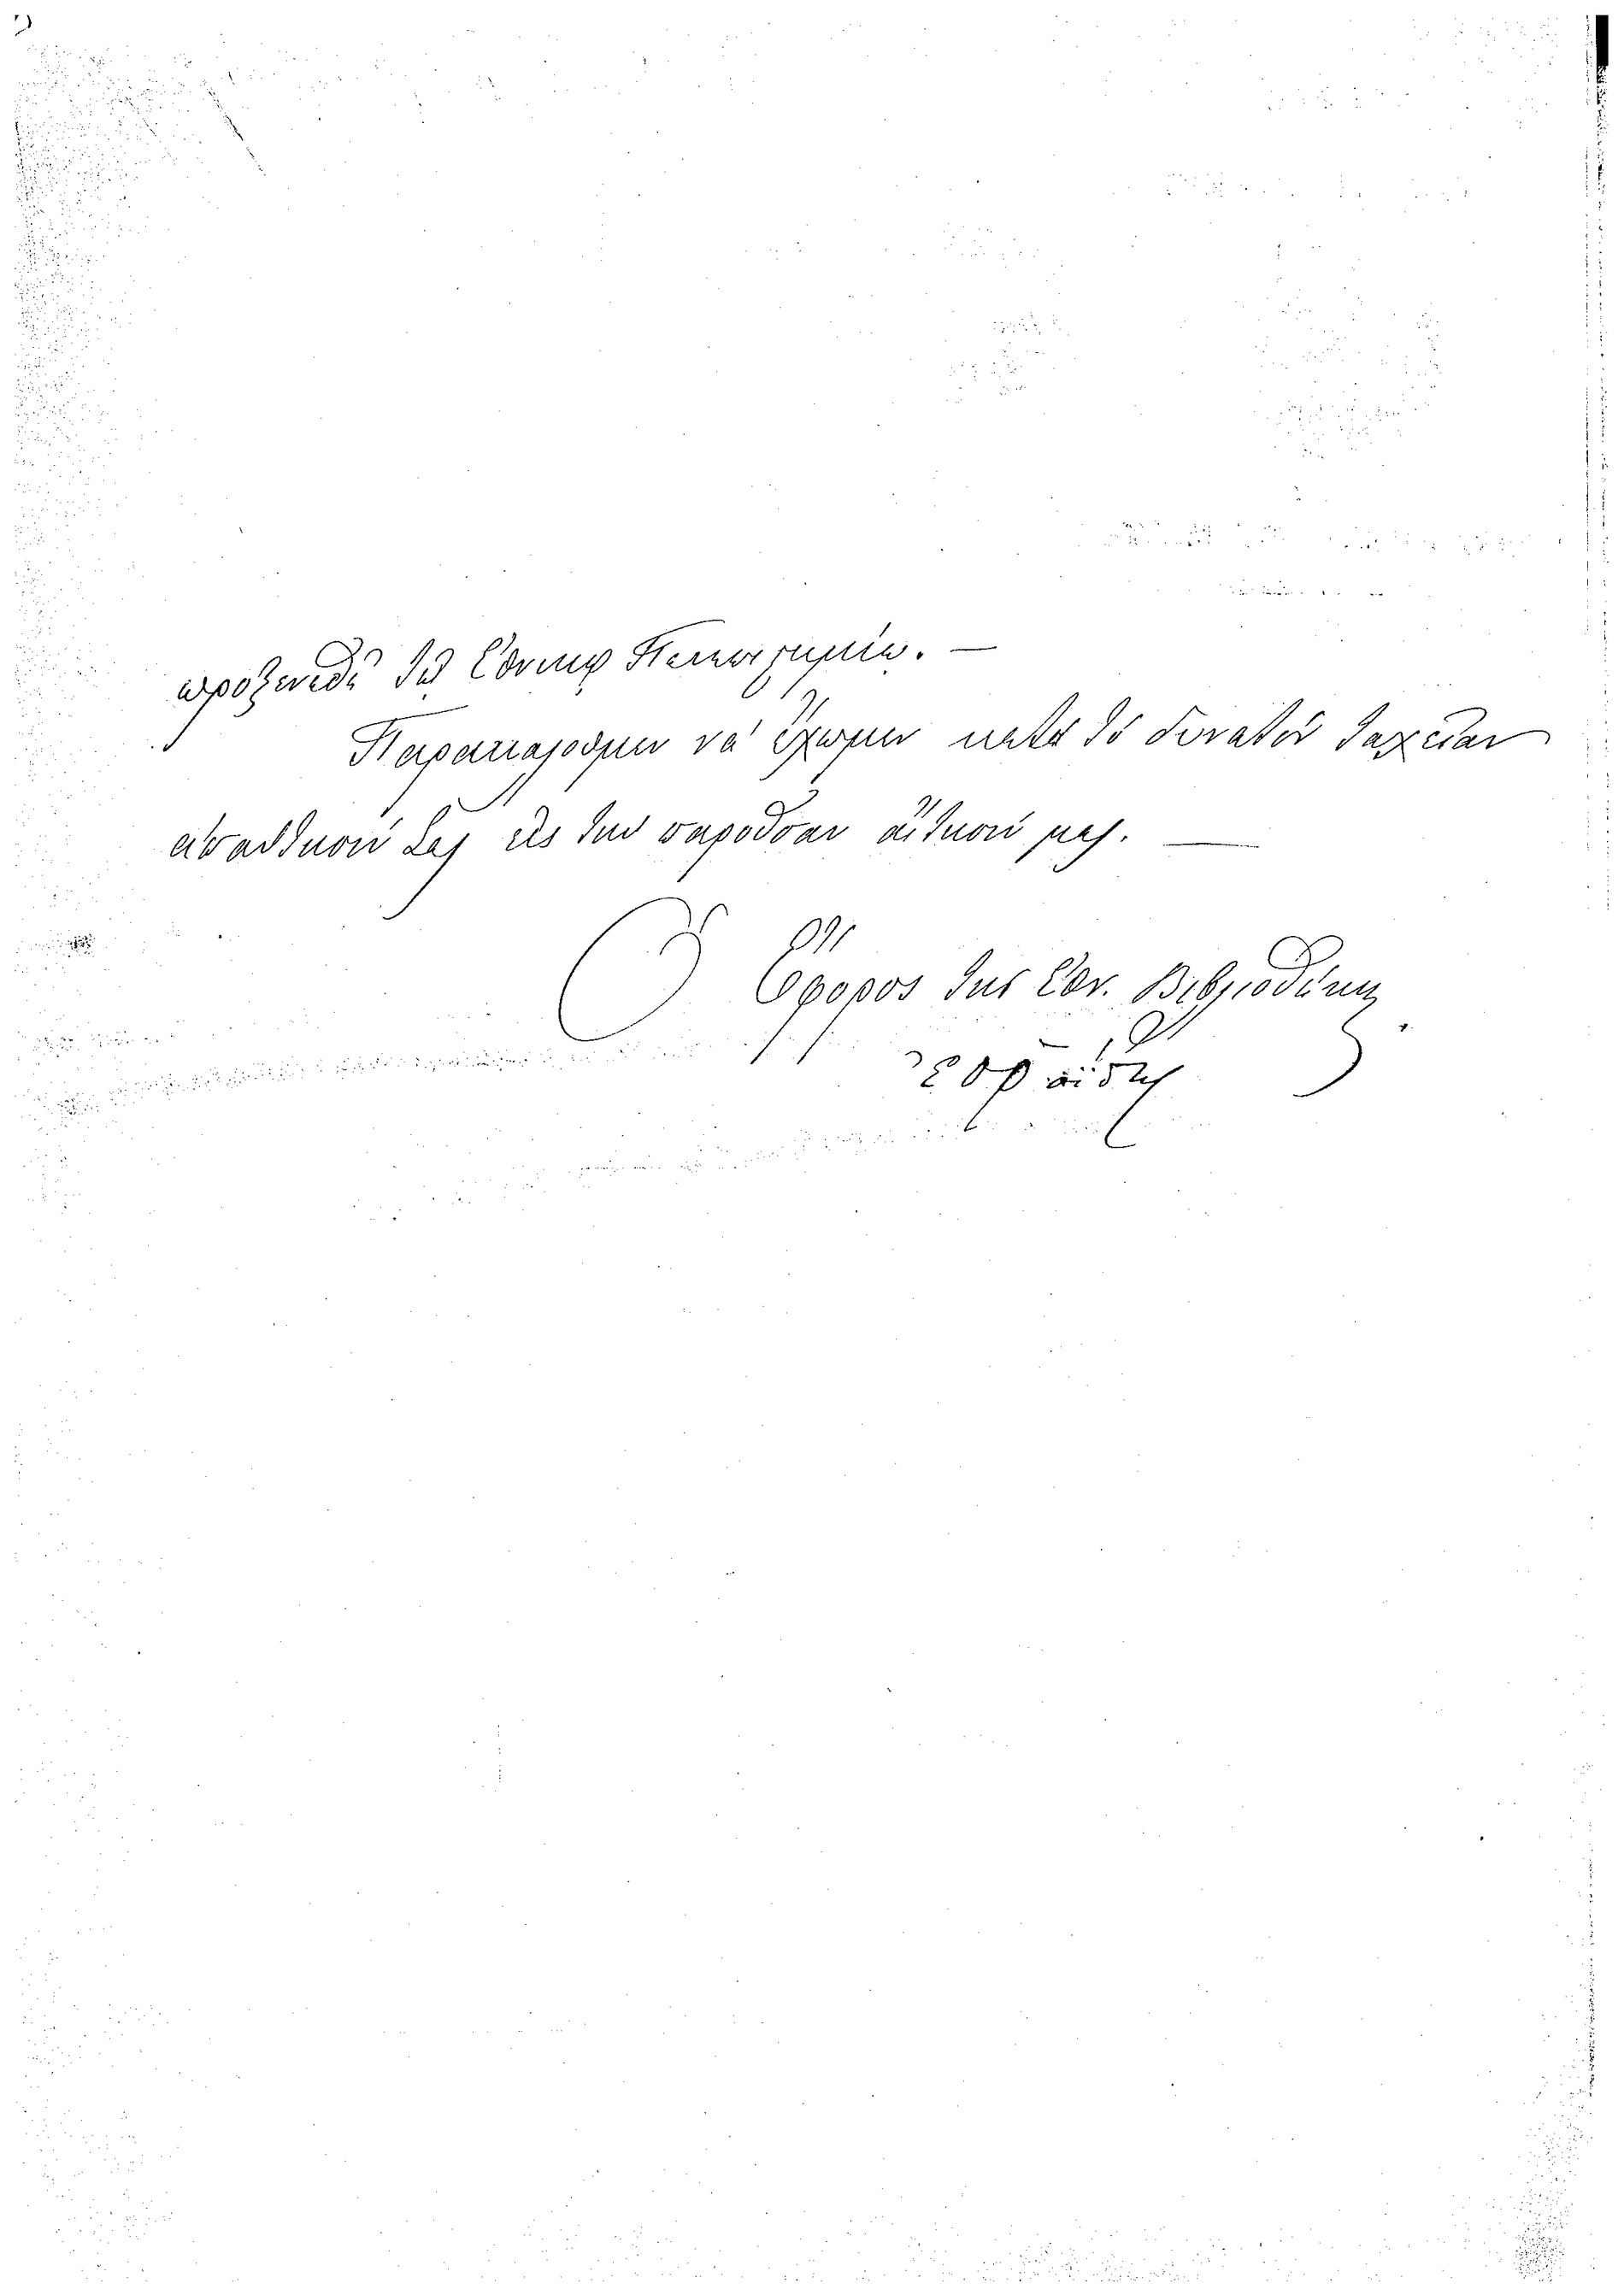 προξενεῖ τῷ Ἐθνικῷ Πανεπιστημίῳ. —
Παρακαλοῦμεν νὰ ἔχωμεν κατὰ τὸ δυνατὸν ταχεῖαν
ἀπάντησίν σας εἰς τὴν παροῦσαν αἴτησίν μας. —
Ὁ Ἔφορος τῆς Ἐθν. Βιβλιοθήκης